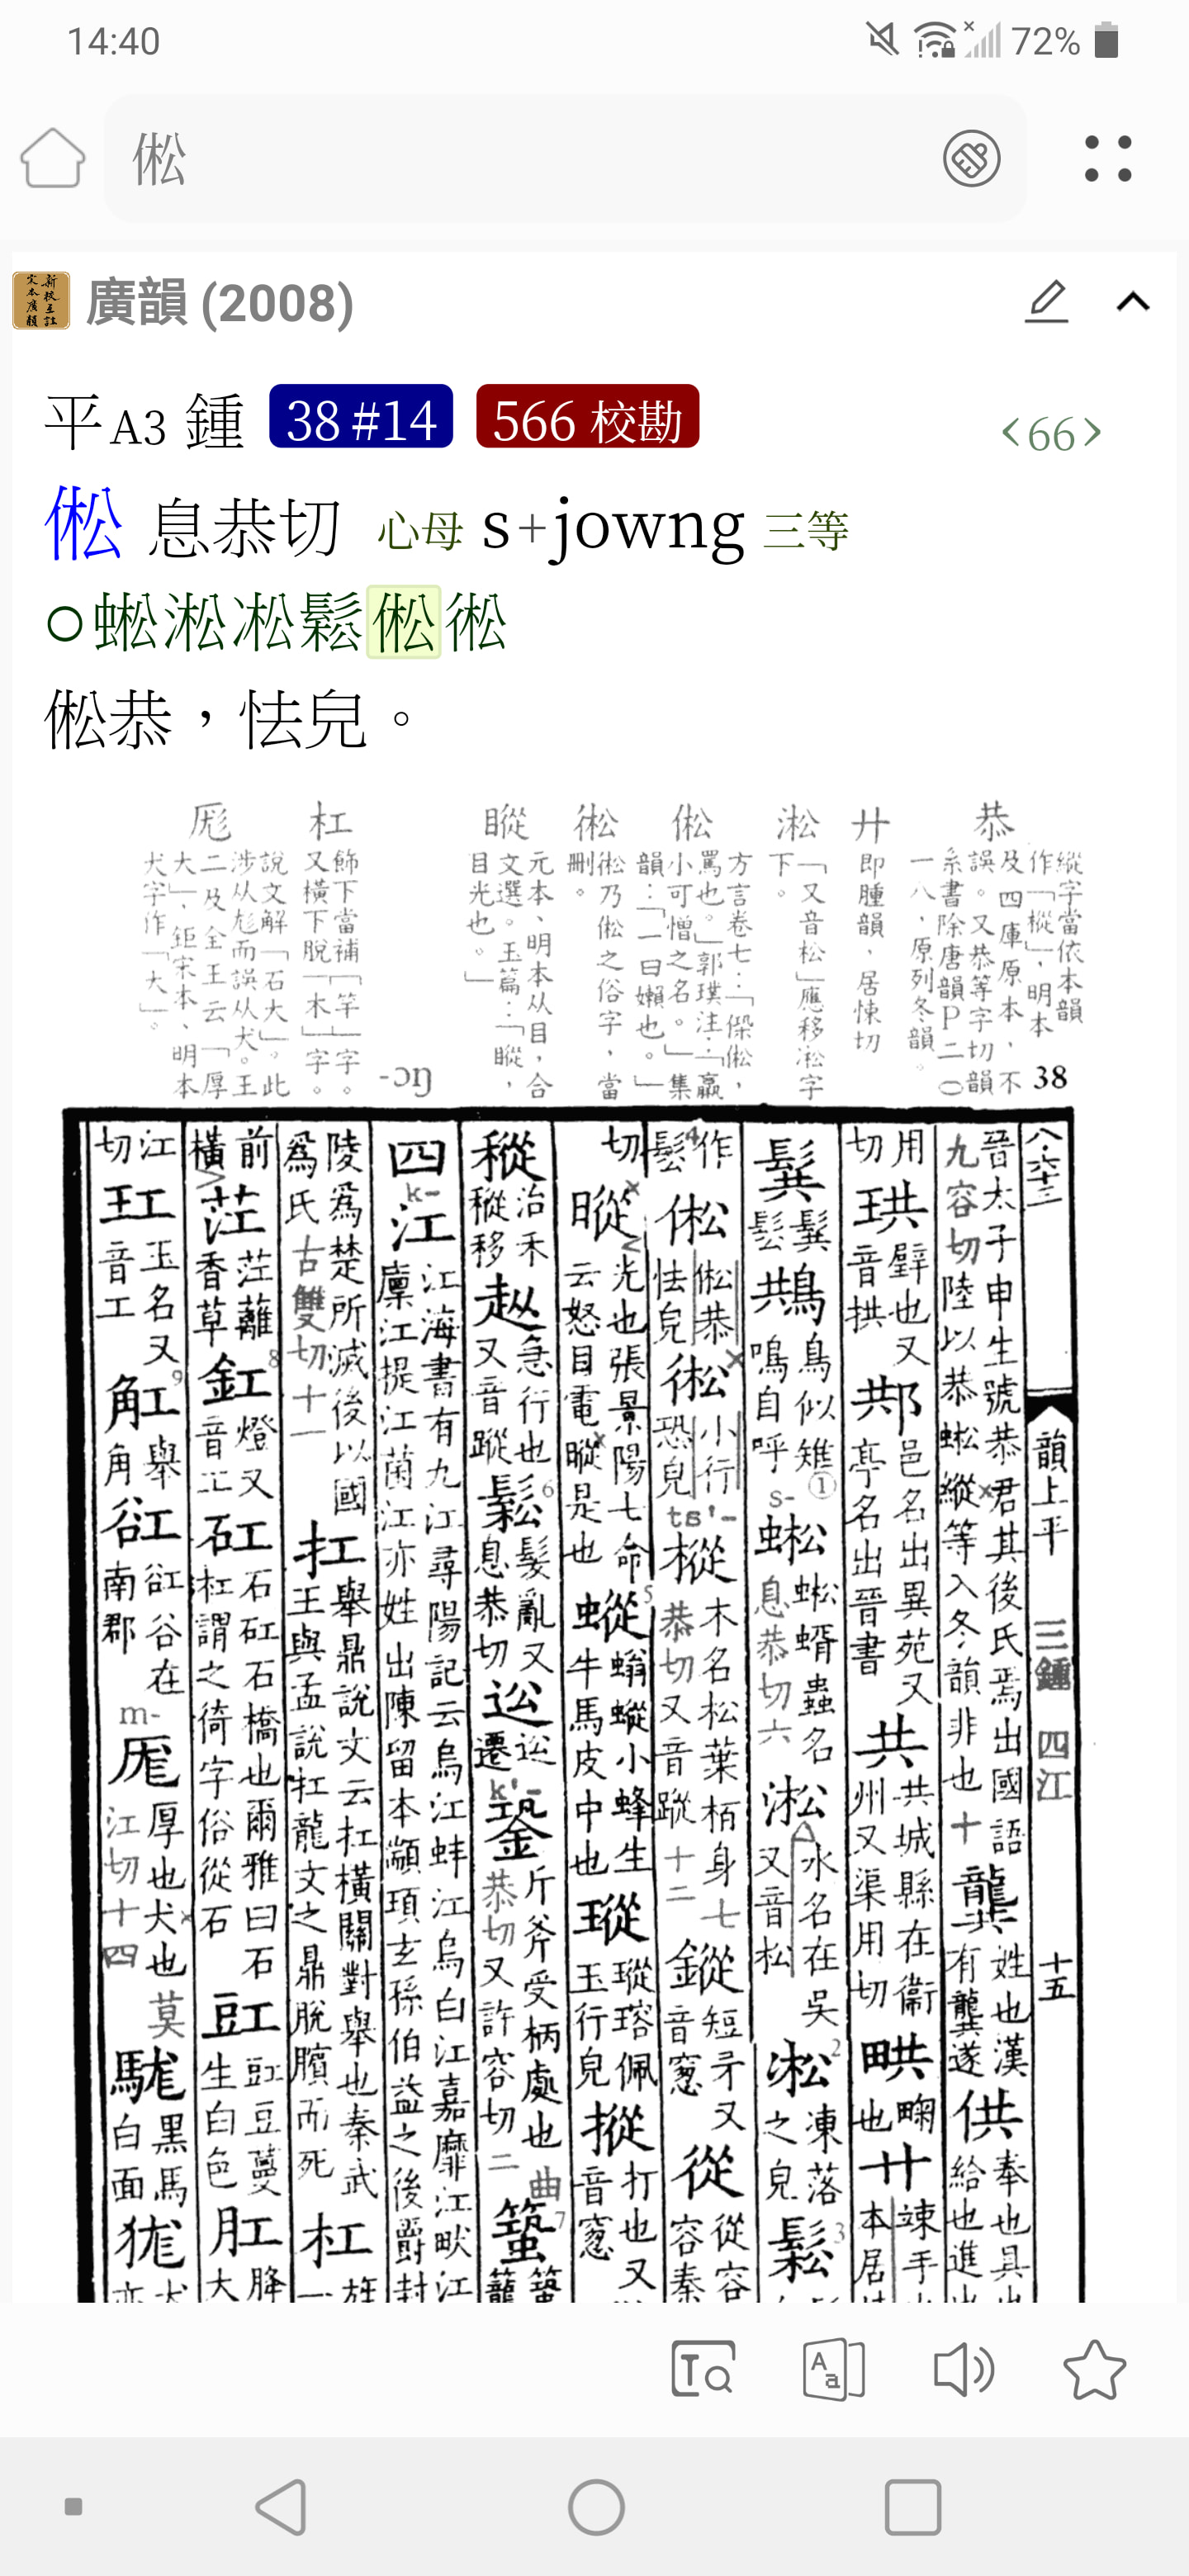 14:40
72%
倯
廣韻 (2008)
平 A3 鍾 38 #14 566 校勘 <66>
倯 息恭切 心母 s+jowng 三等
○蜙淞凇鬆倯徔
倯恭，怯皃。
恭
縱字當依本韻
作「樅」，明本
及四庫原本，不
誤。又恭等字切韻
系書除唐韻P二〇
一八，原列冬韻。
廾
即腫韻，居悚切
淞
「又音松」應移凇字
下。
倯
方言卷七：「傑倯，
罵也。」郭璞注：「羸
小可憎之名。」集
韻：「一曰嬾也。」
倯乃倯之俗字，當
刪。
瞛
元本、明本从目，合
文選。玉篇：「瞛，
目光也。」
-ɔŋ
杠
飾下當補「竿」字。
又橫下脫「木」字。
厖
說文解「石大」。此
涉从尨而誤从犬。王
二及全王云「厚
大」，鉅宋本、明本
犬字作「大」。
38
韻上平 三鍾 四江 十五
晉太子申生號恭君其後氏焉出國語
九容切陸以恭蜙縱等入冬韻非也十
龔 姓也漢有龔遂
供 奉也具也給也進也
用切
珙 璧也又音拱
邦 邑名出異苑又亭名出晉書
共 共城縣在衞州又渠用切
㤨 畮也
廾 竦手
鬓 鬓髟
鳥似雉鳴自呼
s-
蜙 蜙蝑蟲名息恭切六
淞 水名在吳又音松
凇 凍落之皃
鬆
作鬆
倯 倯恭怯皃
徔 小行恐皃
tsʻ-
樅 木名松葉柏身七恭切又音蹤十二
鏦 短矛又音窻
從 從容
切
瞛 光也張景陽七命云怒目電瞛是也
螉䗥小蜂生牛馬皮中也
瑽 瑽瑢佩玉行皃
摐 打也又音窻
䅮 治禾䅮移
急行也又音蹤
鬆 髮亂又息恭切
kʻ-
銎 斤斧受柄處也曲恭切又許容切二
蛩
四
k-
江 江海書有九江尋陽記云烏江蚌江烏白江嘉靡江畎江
廩江提江菌江亦姓出陳留本顓頊玄孫伯益之後爵封
陵爲楚所滅後以國爲氏古雙切十一
扛 舉鼎說文云扛橫關對舉也秦武
王與孟說扛龍文之鼎脫臏而死
杠
前橫
茳 茳蘺香草
釭 燈又音工
矼 石矼石橋也爾雅曰石杠謂之徛字俗從石
豇 豇豆蔓生白色
肛
江切
玒 玉名又音工
舡 舉角
谾 谷在南郡
m-
厖 厚也犬也莫江切十四
駹 黑馬白面
狵